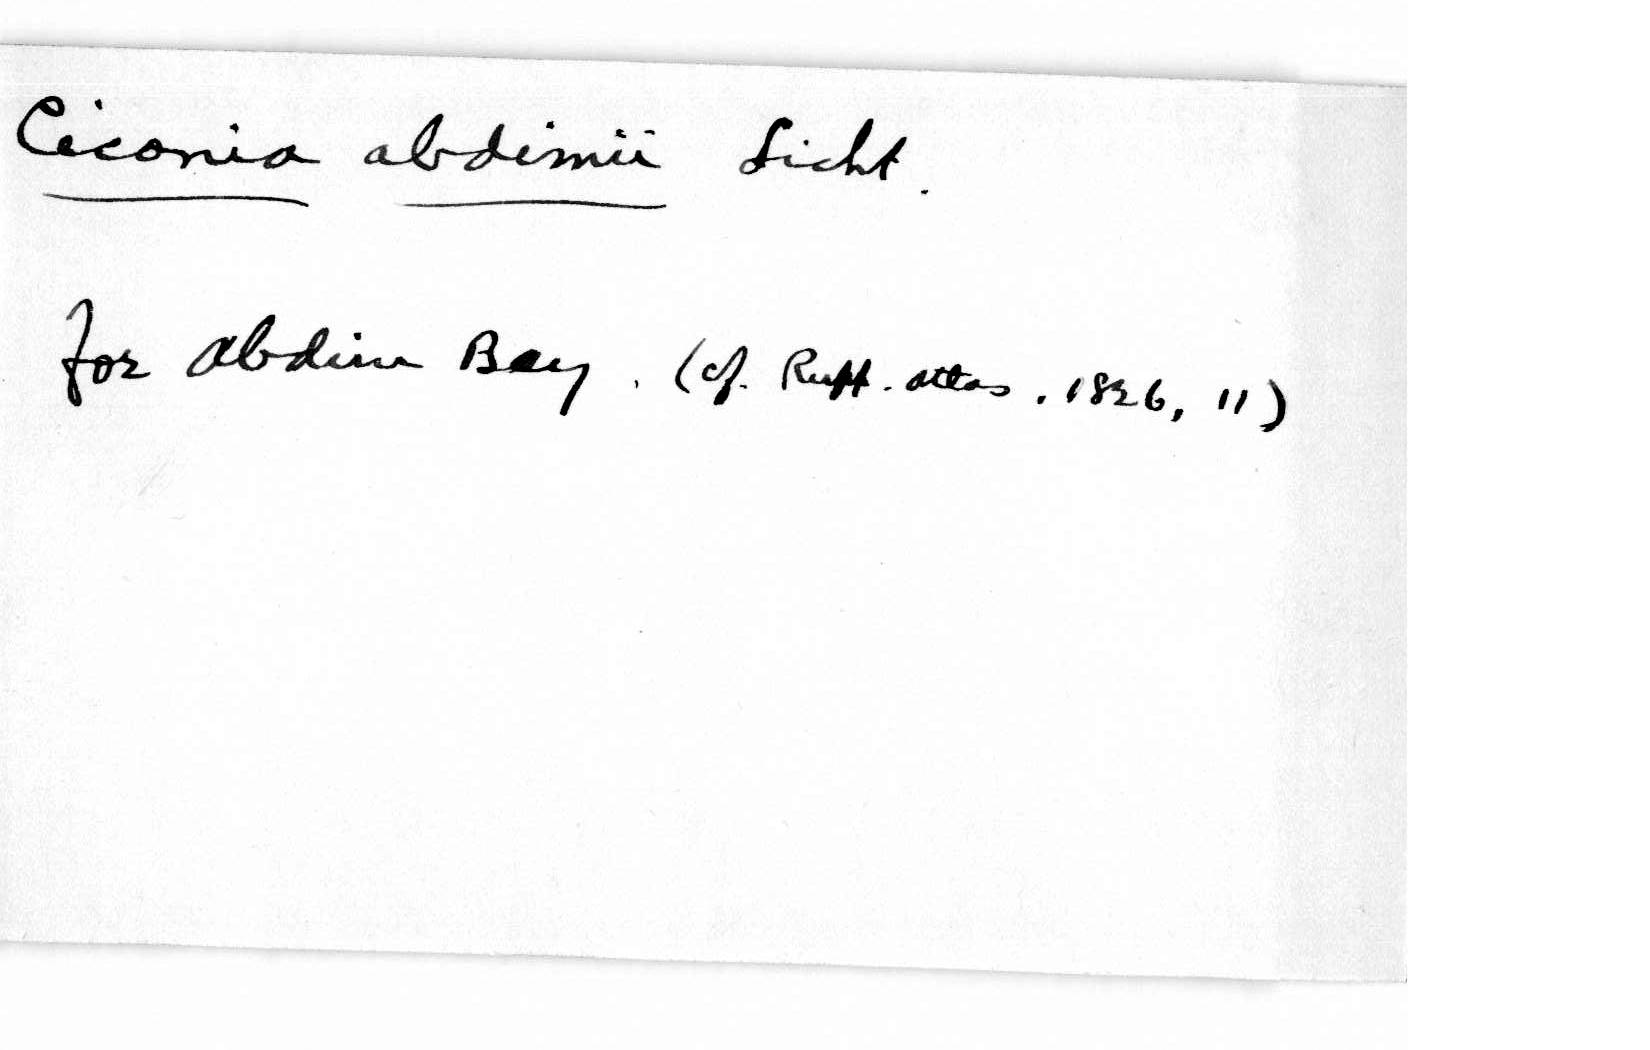 Ciconia abdimii Licht.
for Abdim Bey. (cf. Rupp. atlas. 1826, 11)